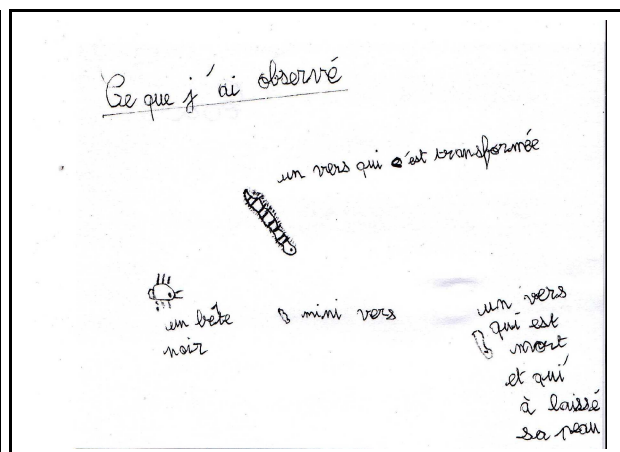 Ce que j'ai observé
un vers qui c'est transformée
un bête
noir
mini vers
un vers
qui est
mort
et qui
à laissé
sa peau